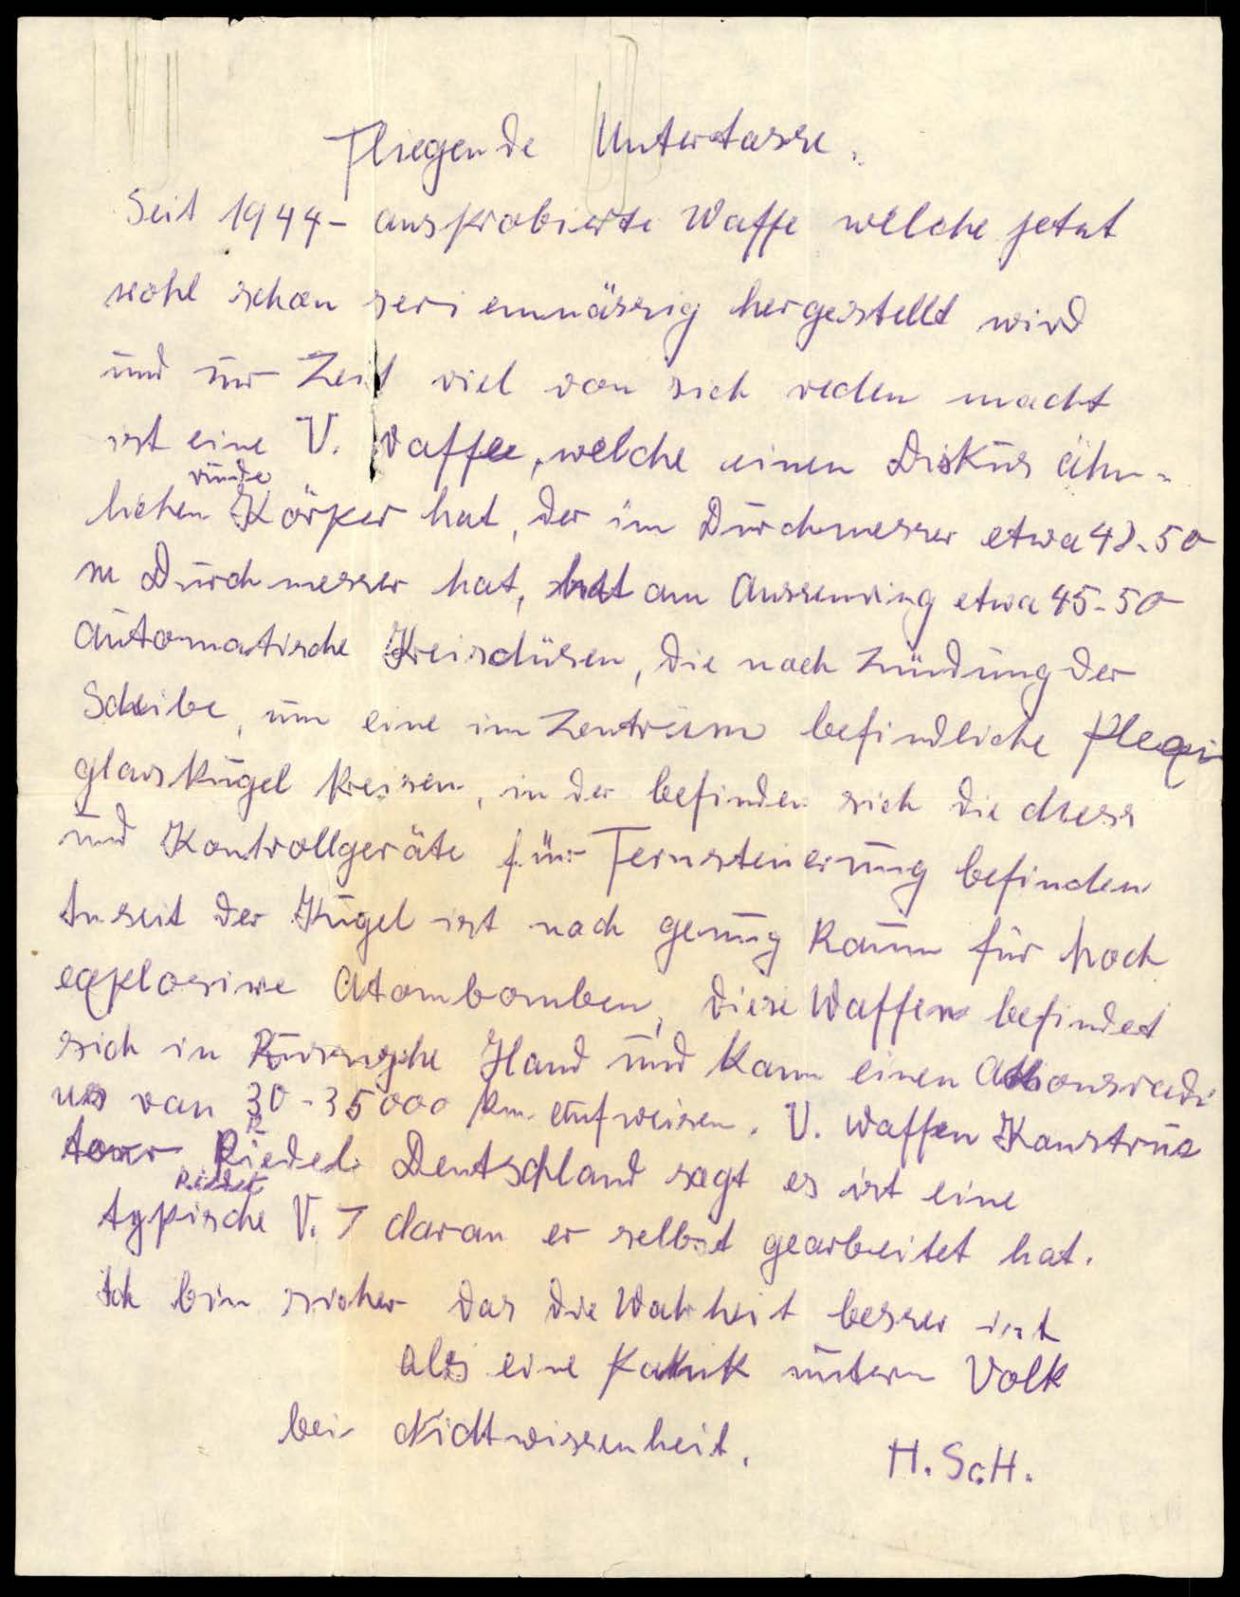 Fliegende Untertasse.
Seit 1944 - ausprobierte Waffe welche jetzt
wohl schon serienmässig hergestellt wird
und zur Zeit viel von sich reden macht
ist eine V. Waffe, welche einen Diskus ähn-
runde
lichen Körper hat, der im Durchmesser etwa 42-50
m Durchmesser hat, hat am Aussenring etwa 45-50
automatische Kreisdüsen, die nach Zündung der
Scheibe, um eine im Zentrum befindliche Plexi
glaskugel kreisen, in der befinden sich die Mess
und Kontrollgeräte für Fernsteuerung befinden
der Kugel ist noch genug Raum für hoch
explosive Atombomben, diese Waffen befindet
sich in Hand und kann einen Aktionsradi
us von 30-35000 km. aufweisen. V. Waffen Konstruk
teur Riedel Deutschland sagt es ist eine
Riedel
typische V. 7 daran er selbst gearbeitet hat.
Ich bin sicher das die Wahrheit besser ist
als eine Panik unterm Volk
bei Nichtwissenheit.
H. ScH.